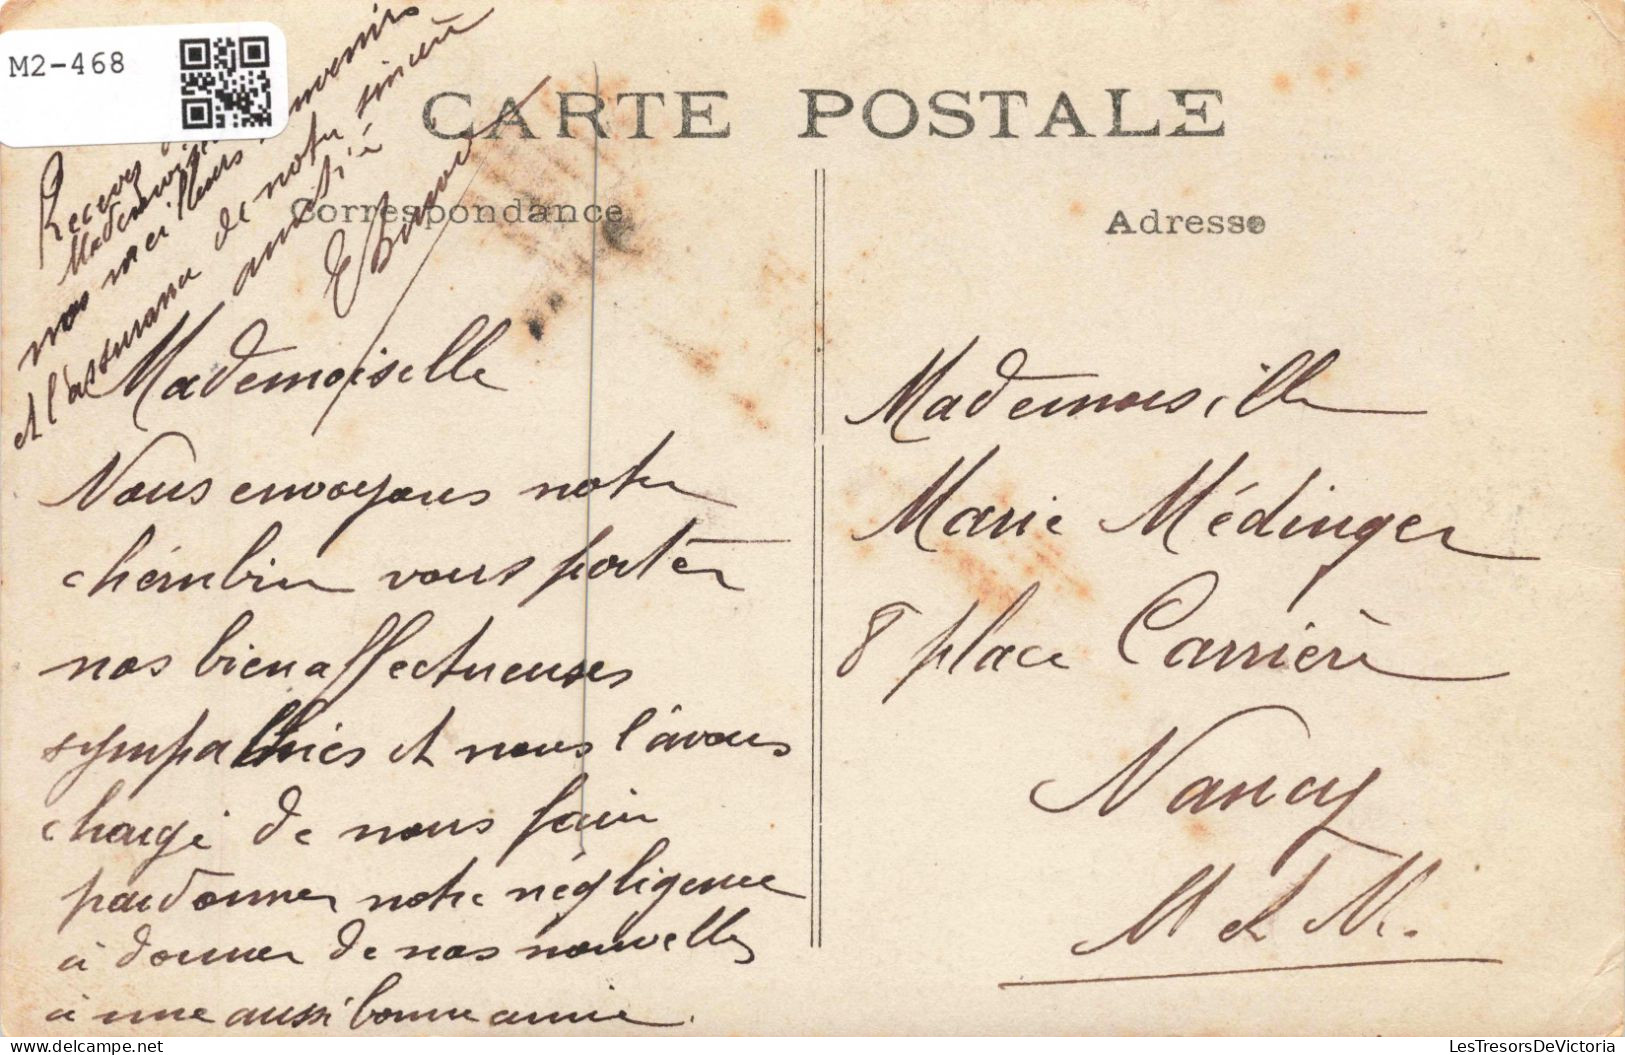 M2-468
CARTE POSTALE
Correspondance
Adresse
Mademoiselle
Nous envoyons notre
chérubin vous porter
nos bien affectueuses
sympathies et nous l'avons
chargé de nous faire
pardonner notre négligence
à donner de nos nouvelles
à une aussi bonne amie.
Recevez
Mademoiselle
nos meilleurs souvenirs
et l'assurance de notre sincère
amitié
Mademoiselle
Marie Médinger
8 place Carrière
Nancy
M et M.
LesTresorsDeVictoria